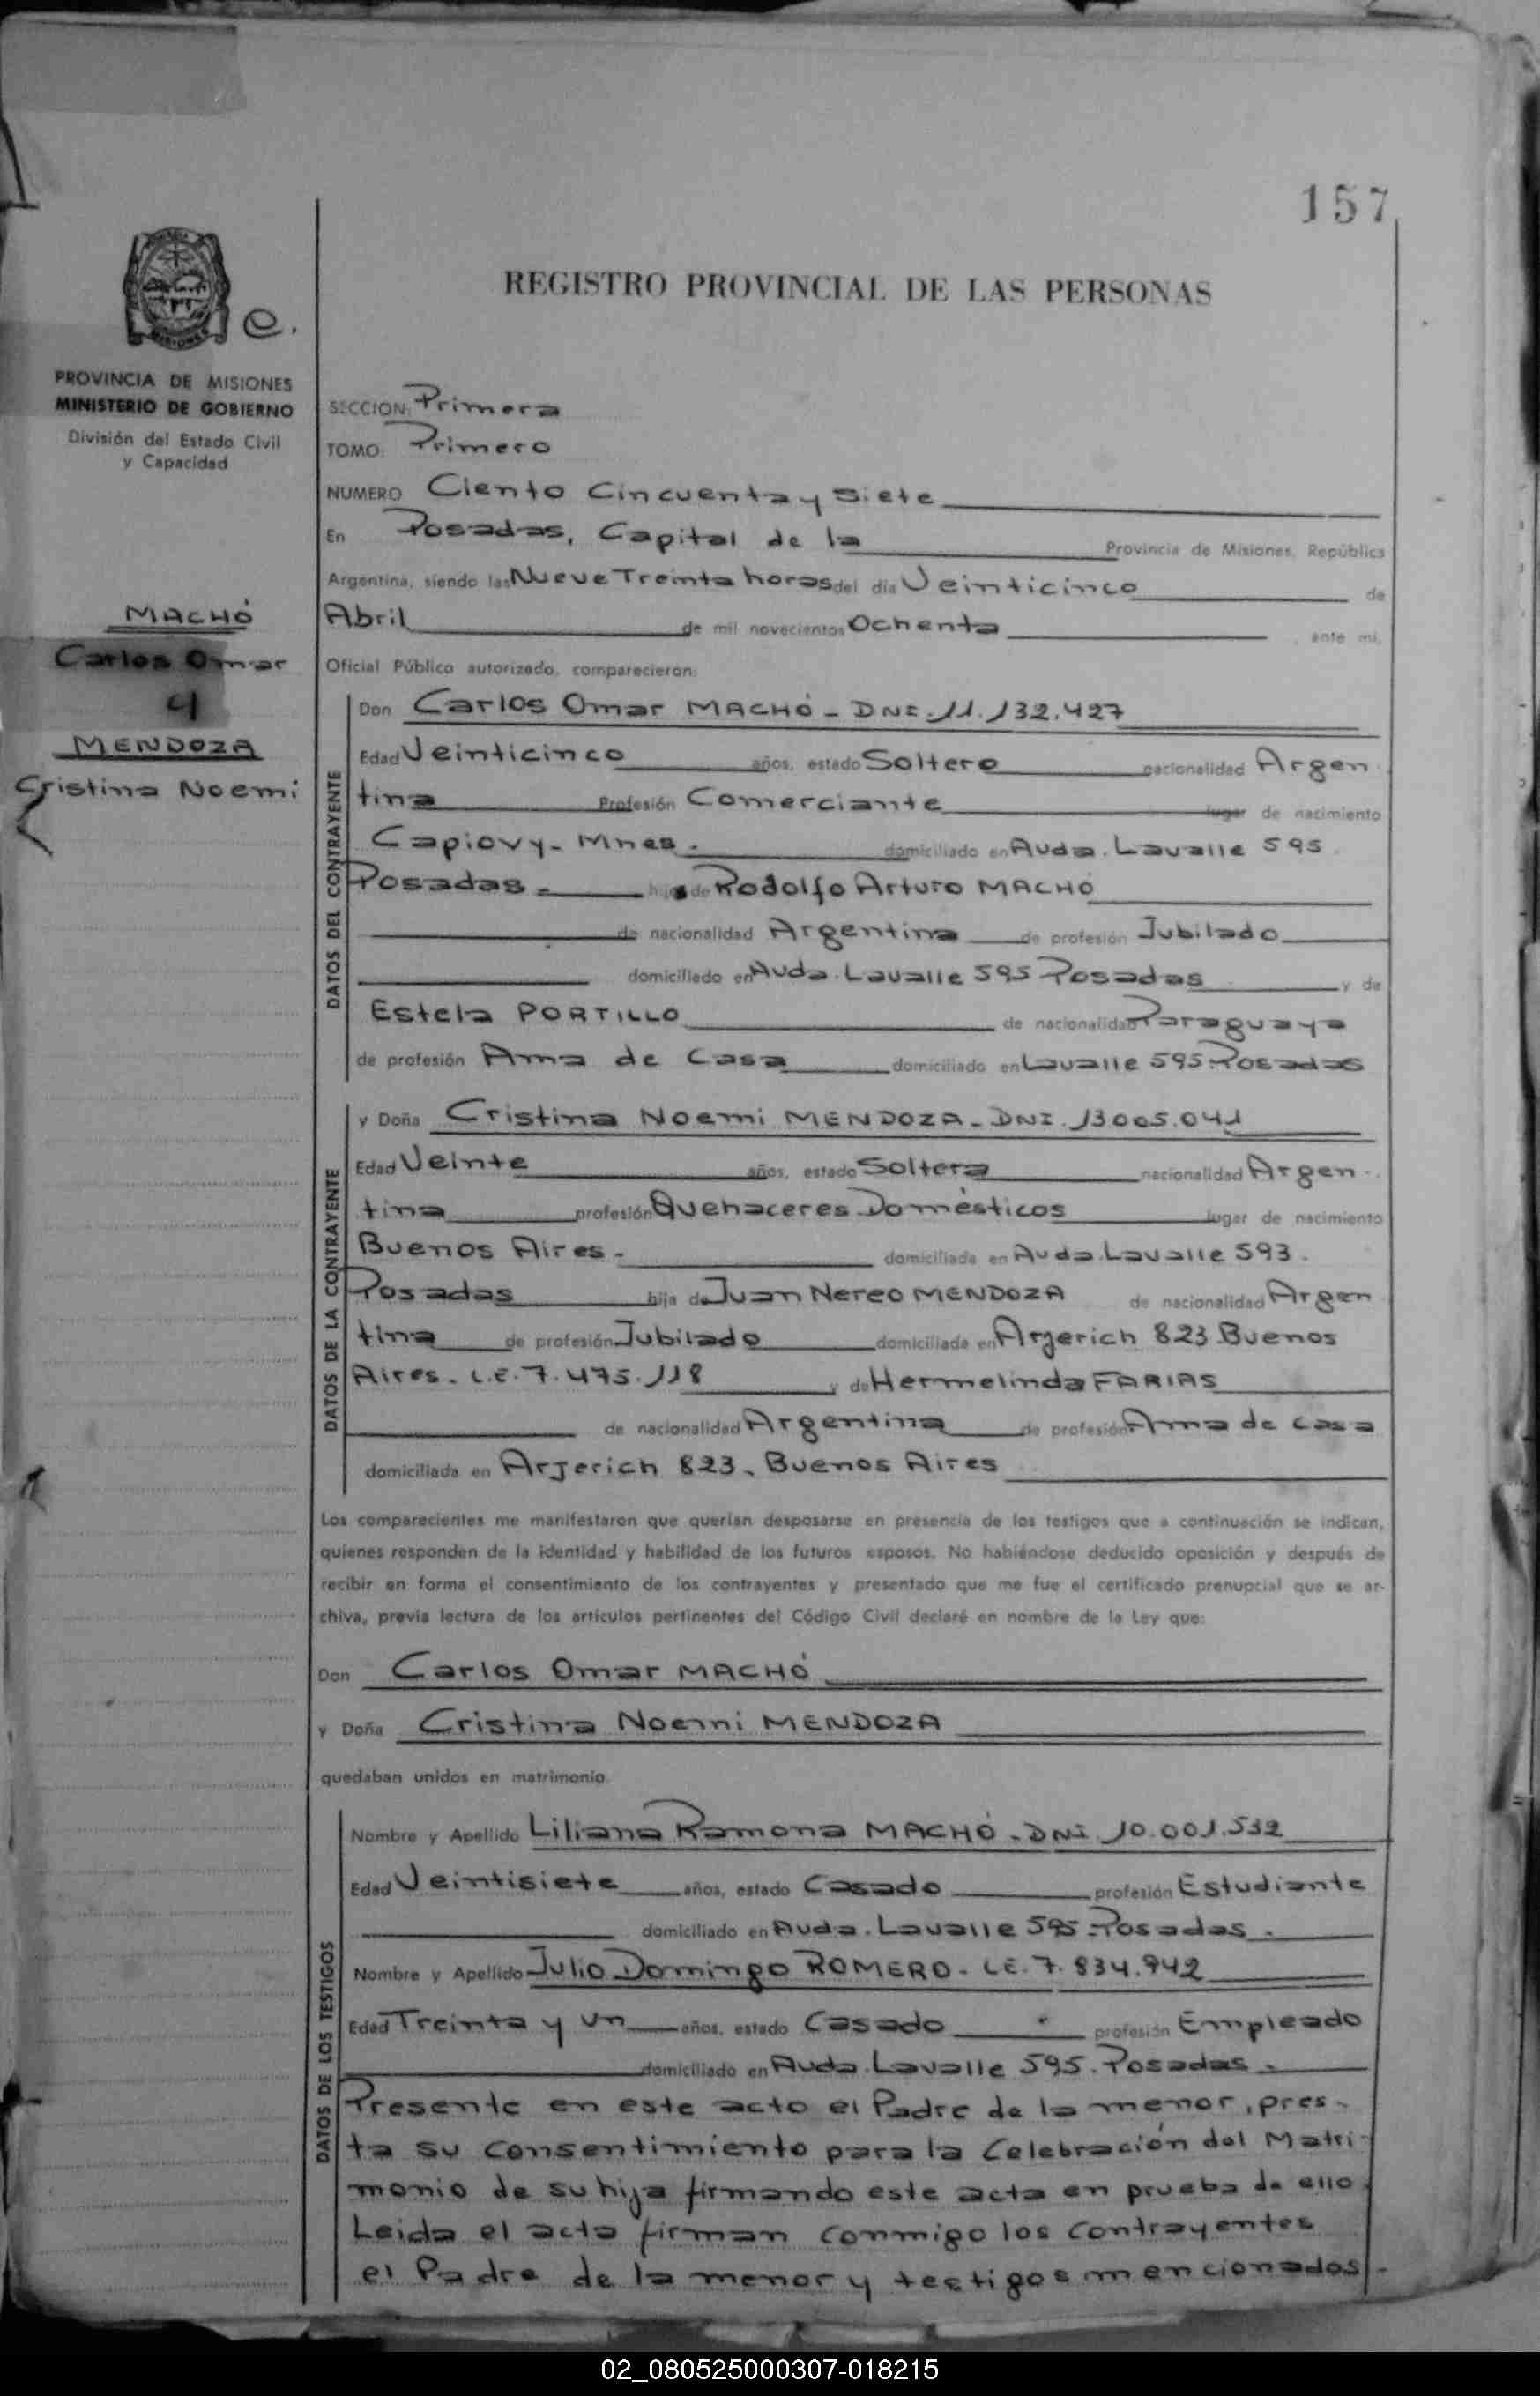 157
REGISTRO PROVINCIAL DE LAS PERSONAS
MISIONES
e.
PROVINCIA DE MISIONES
MINISTERIO DE GOBIERNO
División del Estado Civil
y Capacidad
MACHÓ
Carlos Omar
y
MENDOZA
Cristina Noemi
SECCION: Primera
TOMO: Primero
NUMERO Ciento Cincuenta y Siete
En Posadas, Capital de la Provincia de Misiones, República
Argentina, siendo las Nueve Treinta horas del día Veinticinco de
Abril de mil novecientos Ochenta ante mi,
Oficial Público autorizado, comparecieron:
DATOS DEL CONTRAYENTE
Don Carlos Omar MACHÓ - DNI. 11.132.427
Edad Veinticinco años, estado Soltero nacionalidad Argen
tina Profesión Comerciante lugar de nacimiento
Capiovy - Mnes. domiciliado en Avda. Lavalle 595.
Posadas - hijo de Rodolfo Arturo MACHÓ
de nacionalidad Argentina de profesión Jubilado
domiciliado en Avda. Lavalle 595 Posadas y de
Estela PORTILLO de nacionalidad Paraguaya
de profesión Ama de Casa domiciliado en Lavalle 595 Posadas
DATOS DE LA CONTRAYENTE
y Doña Cristina Noemi MENDOZA - DNI. 13.005.041
Edad Veinte años, estado Soltera nacionalidad Argen -
tina profesión Quehaceres Domésticos lugar de nacimiento
Buenos Aires - domiciliada en Avda. Lavalle 593.
Posadas hija de Juan Nereo MENDOZA de nacionalidad Argen
tina de profesión Jubilado domiciliada en Arjerich 823 Buenos
Aires - L.E. 7.475.118 y de Hermelinda FARIAS
de nacionalidad Argentina de profesión Ama de casa
domiciliada en Arjerich 823. Buenos Aires
Los comparecientes me manifestaron que querían desposarse en presencia de los testigos que a continuación se indican,
quienes responden de la identidad y habilidad de los futuros esposos. No habiéndose deducido oposición y después de
recibir en forma el consentimiento de los contrayentes y presentado que me fue el certificado prenupcial que se ar-
chiva, previa lectura de los artículos pertinentes del Código Civil declaré en nombre de la Ley que:
Don Carlos Omar MACHÓ
y Doña Cristina Noemi MENDOZA
quedaban unidos en matrimonio.
DATOS DE LOS TESTIGOS
Nombre y Apellido Liliana Ramona MACHÓ - DNI 10.001.532
Edad Veintisiete años, estado Casado profesión Estudiante
domiciliado en Avda. Lavalle 595 - Posadas.
Nombre y Apellido Julio Domingo ROMERO - LE. 7.834.942
Edad Treinta y un años, estado Casado profesión Empleado
domiciliado en Avda. Lavalle 595. Posadas -
Presente en este acto el Padre de la menor, pres-
ta su consentimiento para la Celebración del Matri-
monio de su hija firmando este acta en prueba de ello.
Leida el acta firman conmigo los contrayentes
el Padre de la menor y testigos mencionados -
02_080525000307-018215